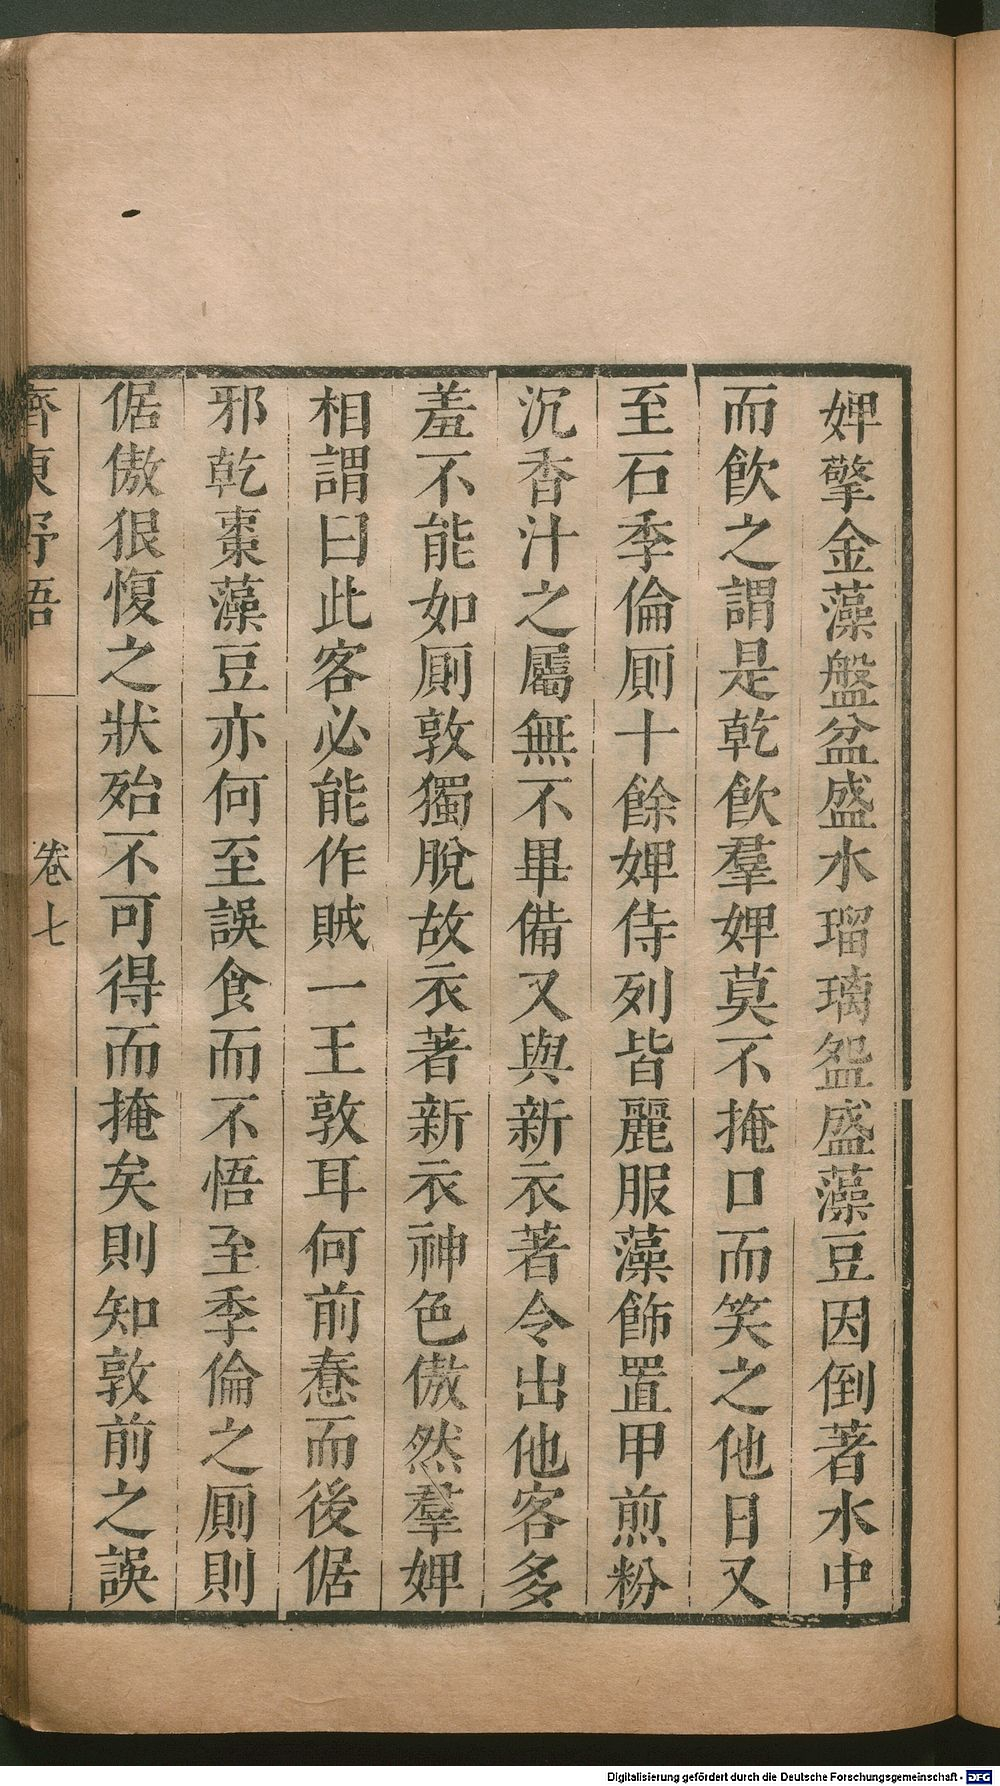 婢擎金藻盤盆盛水瑠璃盌盛藻豆因倒著水中
而飲之謂是乾飲羣婢莫不掩口而笑之他日又
至石季倫厠十餘婢侍列皆麗服藻飾置甲煎粉
沉香汁之屬無不畢備又與新衣著令出他客多
羞不能如厠敦獨脫故衣著新衣神色傲然羣婢
相謂曰此客必能作賊一王敦耳何前惷而後倨
邪乾棗藻豆亦何至誤食而不悟至季倫之厠則
倨傲狠愎之狀殆不可得而掩矣則知敦前之誤
齊東野語 卷七
Digitalisierung gefördert durch die Deutsche Forschungsgemeinschaft - DFG